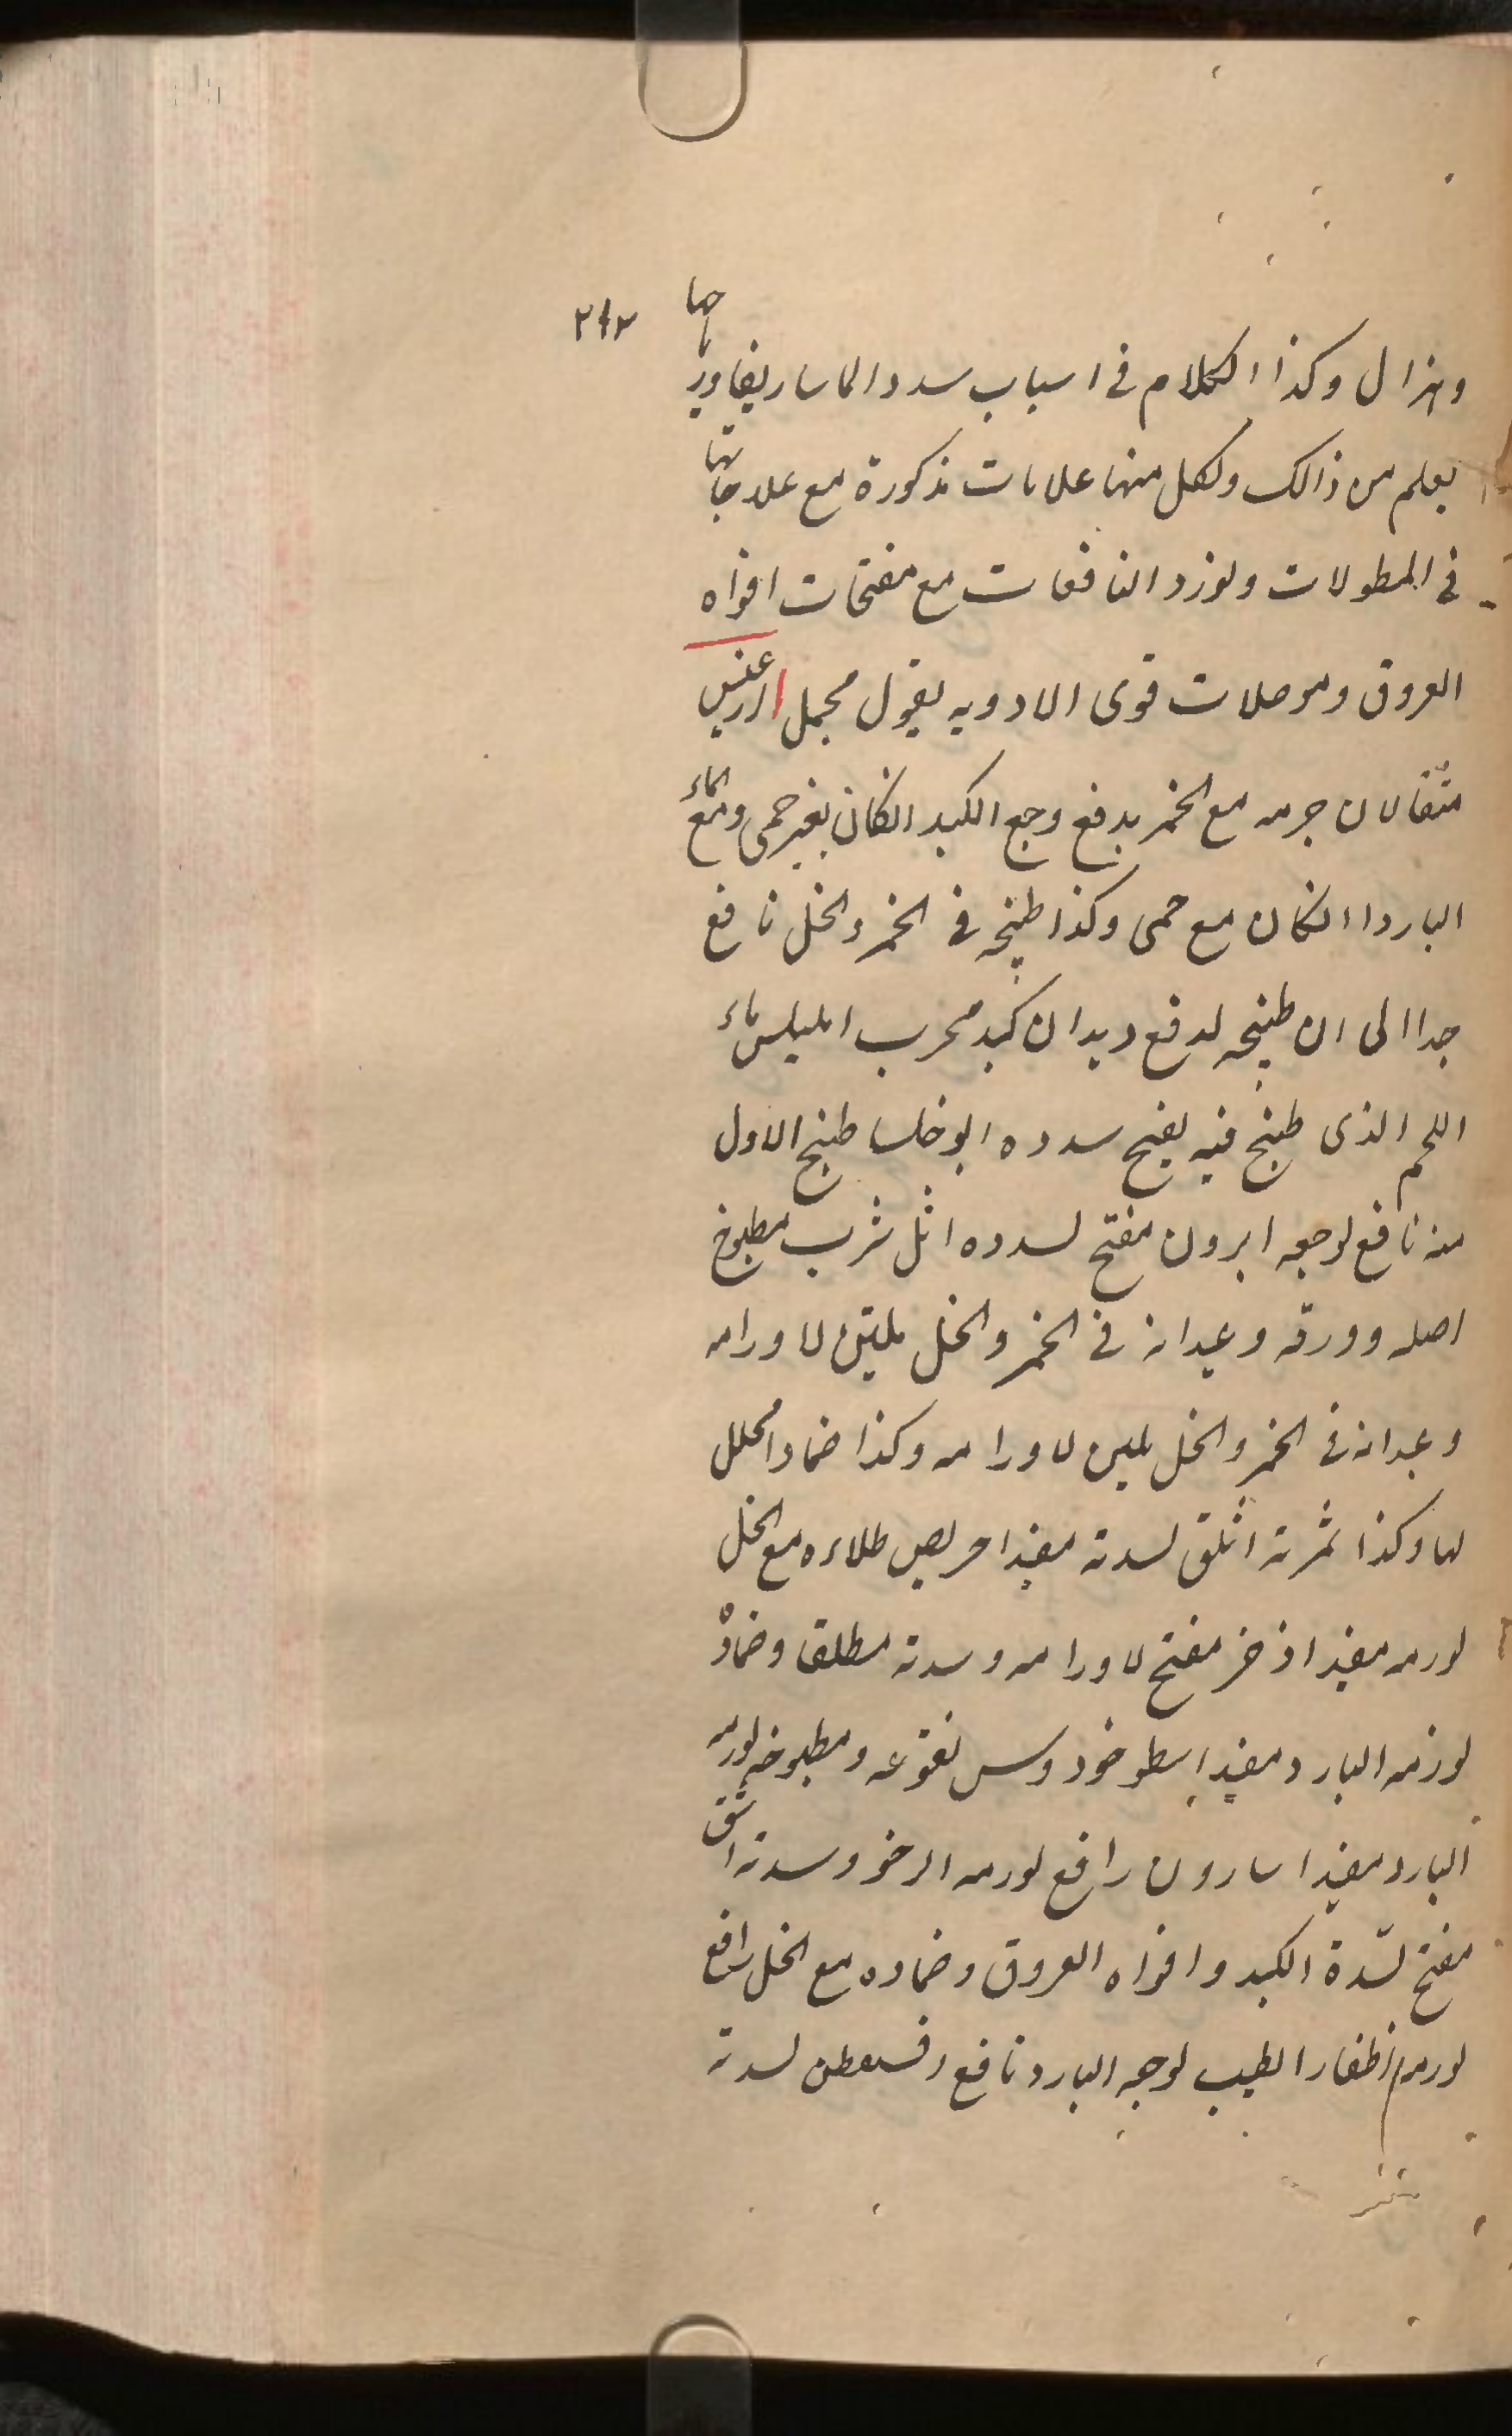 ٢٤٢
وهزال وكذا الكلام في اسباب سدد الماساريقا وريا حها
يعلم من ذالك ولكل منها علامات مذكورة مع علاجاتها
في المطولات ولنورد النافعات مع مفتحات افواه
العروق وموصلات قوى الادويه بقول مجمل
مثقالان جرمه مع الخمر يدفع وجع الكبد انكان بغير حمى ومع الماء
البارد انكان مع حمى وكذا طبخه في الخمر والخل نافع
جدا الى ان طبخه لدفع ديدان كبد مجرب امليلس ماء
اللحم الذى طبخ فيه يفتح سدده ابوخلسا طبخ الاول
منه نافع لوجعه ابرون مفتح لسدده اثل شرب مطبوخ
اصله وورقه وعيدانه في الخمر والخل ملين لاورامه
وعيدانه في الخمر والخل ملين لاورامه وكذا ضمادا محلل
لها وكذا ثمرته اثلق لسدته مفيد احريص طلاءه مع الخل
لورمه مفيد اذخر مفتح لاورامه وسدته مطلقا وضماده
لورمه البارد مفيد اسطوخودوس نقوعه ومطبوخه لورمه
البارد مفيد اسارون رافع لورمه الرخو وسدته اشق
مفتح لسدة الكبد وافواه العروق وضماده مع الخل رافع
لورمه اظفار الطيب لوجعه البارد نافع لسدته